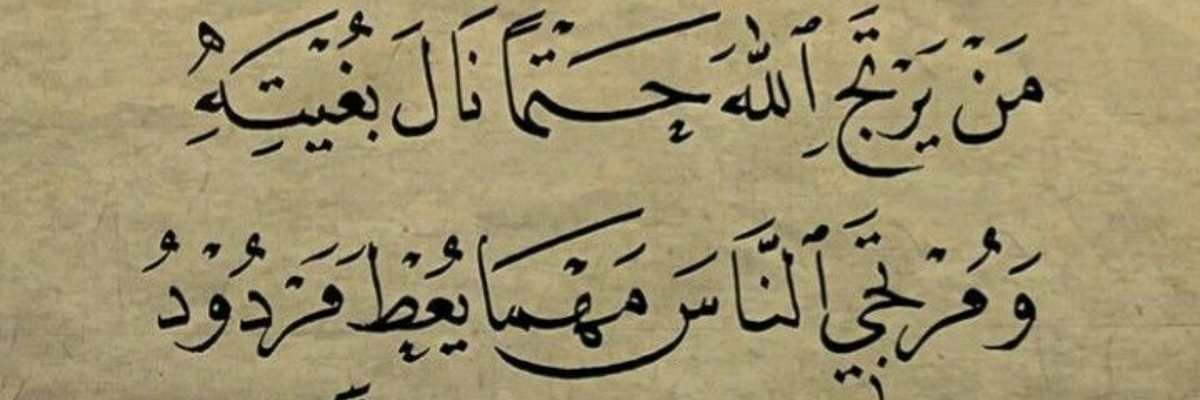 مَنْ يَرْتَجِ ٱللَّهَ حَتْمًا نَالَ بُغْيَتَهُ
وَمُرْتَجِي ٱلنَّاسِ مَهْمَا يُعْطَ مَرْدُودُ